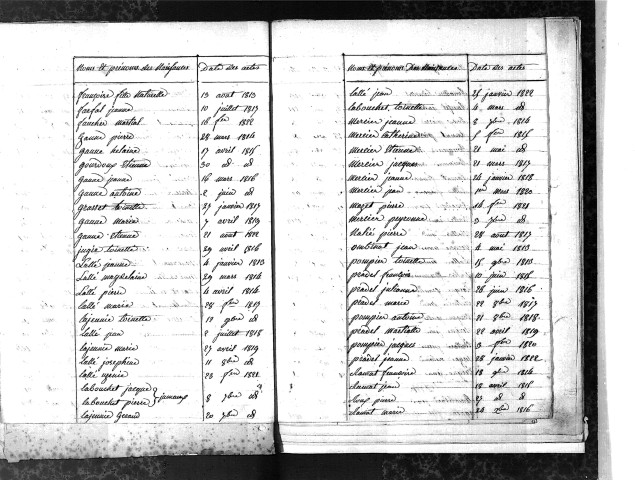 Noms et prénoms des Naissances Date des actes
françoise fille Naturelle 13 aout 1813
farfal jeanne 10 juillet 1817
faucher martial 16 fbre 1822
Ganne pierre 28 mars 1814
ganne helaine 17 avril 1815
gourdoux Etienne 30 d° d°
ganne jeanne 16 mars 1816
ganne antoine 2 juin d°
grasset toinette 29 janvier 1817
ganne Marie 7 avril 1819
ganne Etienne 21 aout 1822
jugie toinette 29 avril 1816
Lallé jeanne 4 janvier 1813
Lallé magdelaine 29 mars 1814
Lallé pierre 4 avril 1814
Lallé marie 28 fbre 1817
lajeunie toinette 19 7bre d°
Lallé jean 2 juillet 1818
lajeunie marie 23 avril 1819
Lallé josephine 11 8bre d°
Lallé 22 fbre 1822
labouchet jacque
labouchet pierre jumeaux 8 7bre d°
lajeunie Geraud 20 7bre d°
Noms et prénoms des Naissances Date des actes
Lallé jean 25 janvier 1822
labouchet, toinette 4 mars d°
Mercier jeanne 8 7bre 1814
Mercier Catherine 5 fbre 1815
Mercier Etienne 21 mai d°
Mercier jacques 21 mars 1817
Mercier jeanne 24 janvier 1818
Mercier jean 1er mars 1820
Mazet pierre 14 fbre 1821
Mercier peyronne 3 7bre d°
pierre 28 aout 1817
jean 4 mai 1813
pompier toinette 15 9bre 1813
pradel françois 10 juin 1815
pradel julienne 26 juin 1816
pradel marie 22 8bre 1817
pompier antoine 21 8bre 1818
pradel martiale 22 avril 1819
pompier jacques 3 fbre 1820
pradel jeanne 28 janvier 1822
françoise 18 9bre 1814
jean 18 avril 1815
pierre 27 d° d°
marie 24 xbre 1816